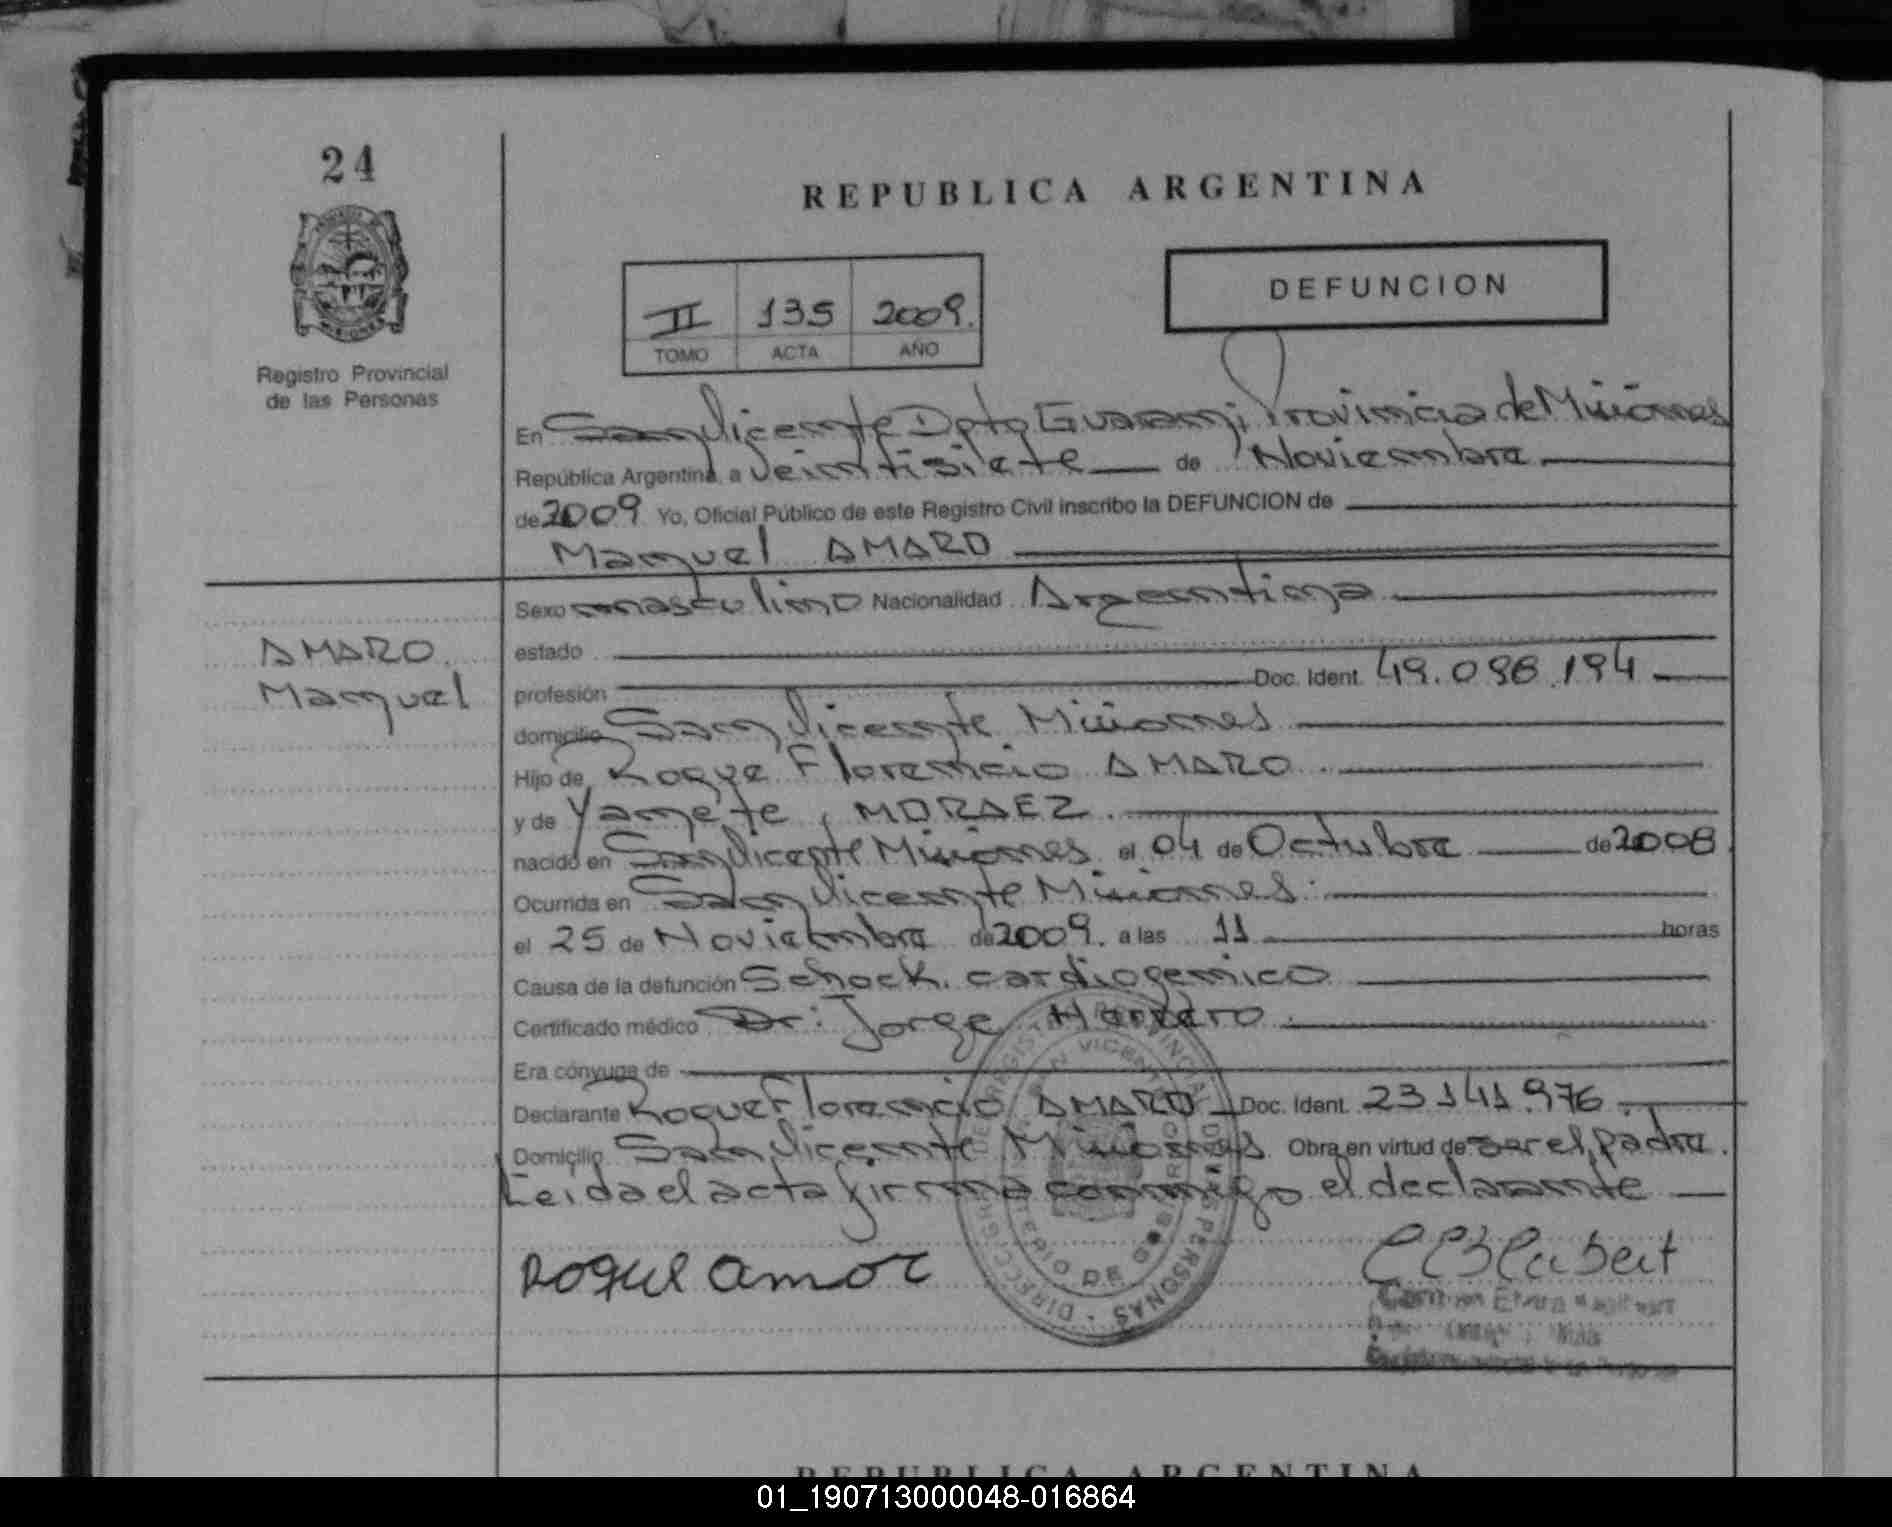 24
REPUBLICA ARGENTINA
DEFUNCION
II 135 2009.
TOMO ACTA AÑO
Registro Provincial
de las Personas
En San Vicente Dpto Guarani Provincia de Misiones
República Argentina, a veintisiete de Noviembre
de 2009 Yo, Oficial Público de este Registro Civil inscribo la DEFUNCION de
Manuel AMARO
AMARO
Manuel
Sexo masculino Nacionalidad Argentina
estado
profesión Doc. Ident. 49.098.194
domicilio San Vicente Misiones
Hijo de Roque Florencio AMARO
y de Yanete, MORAEZ.
nacido en San Vicente Misiones el 04 de Octubre de 2008
Ocurrida en San Vicente Misiones.
el 25 de Noviembre de 2009. a las 11 horas
Causa de la defunción Schock. cardiogenico
Certificado médico Dr: Jorge Herrero
Era cónyuge de
Declarante Roque Florencio AMARO Doc. Ident. 23.141.976
Domicilio San Vicente Misiones. Obra en virtud de ser el padre.
Leida el acta firma conmigo el declarante
ROQUE amor
REPUBLICA ARGENTINA
01_190713000048-016864